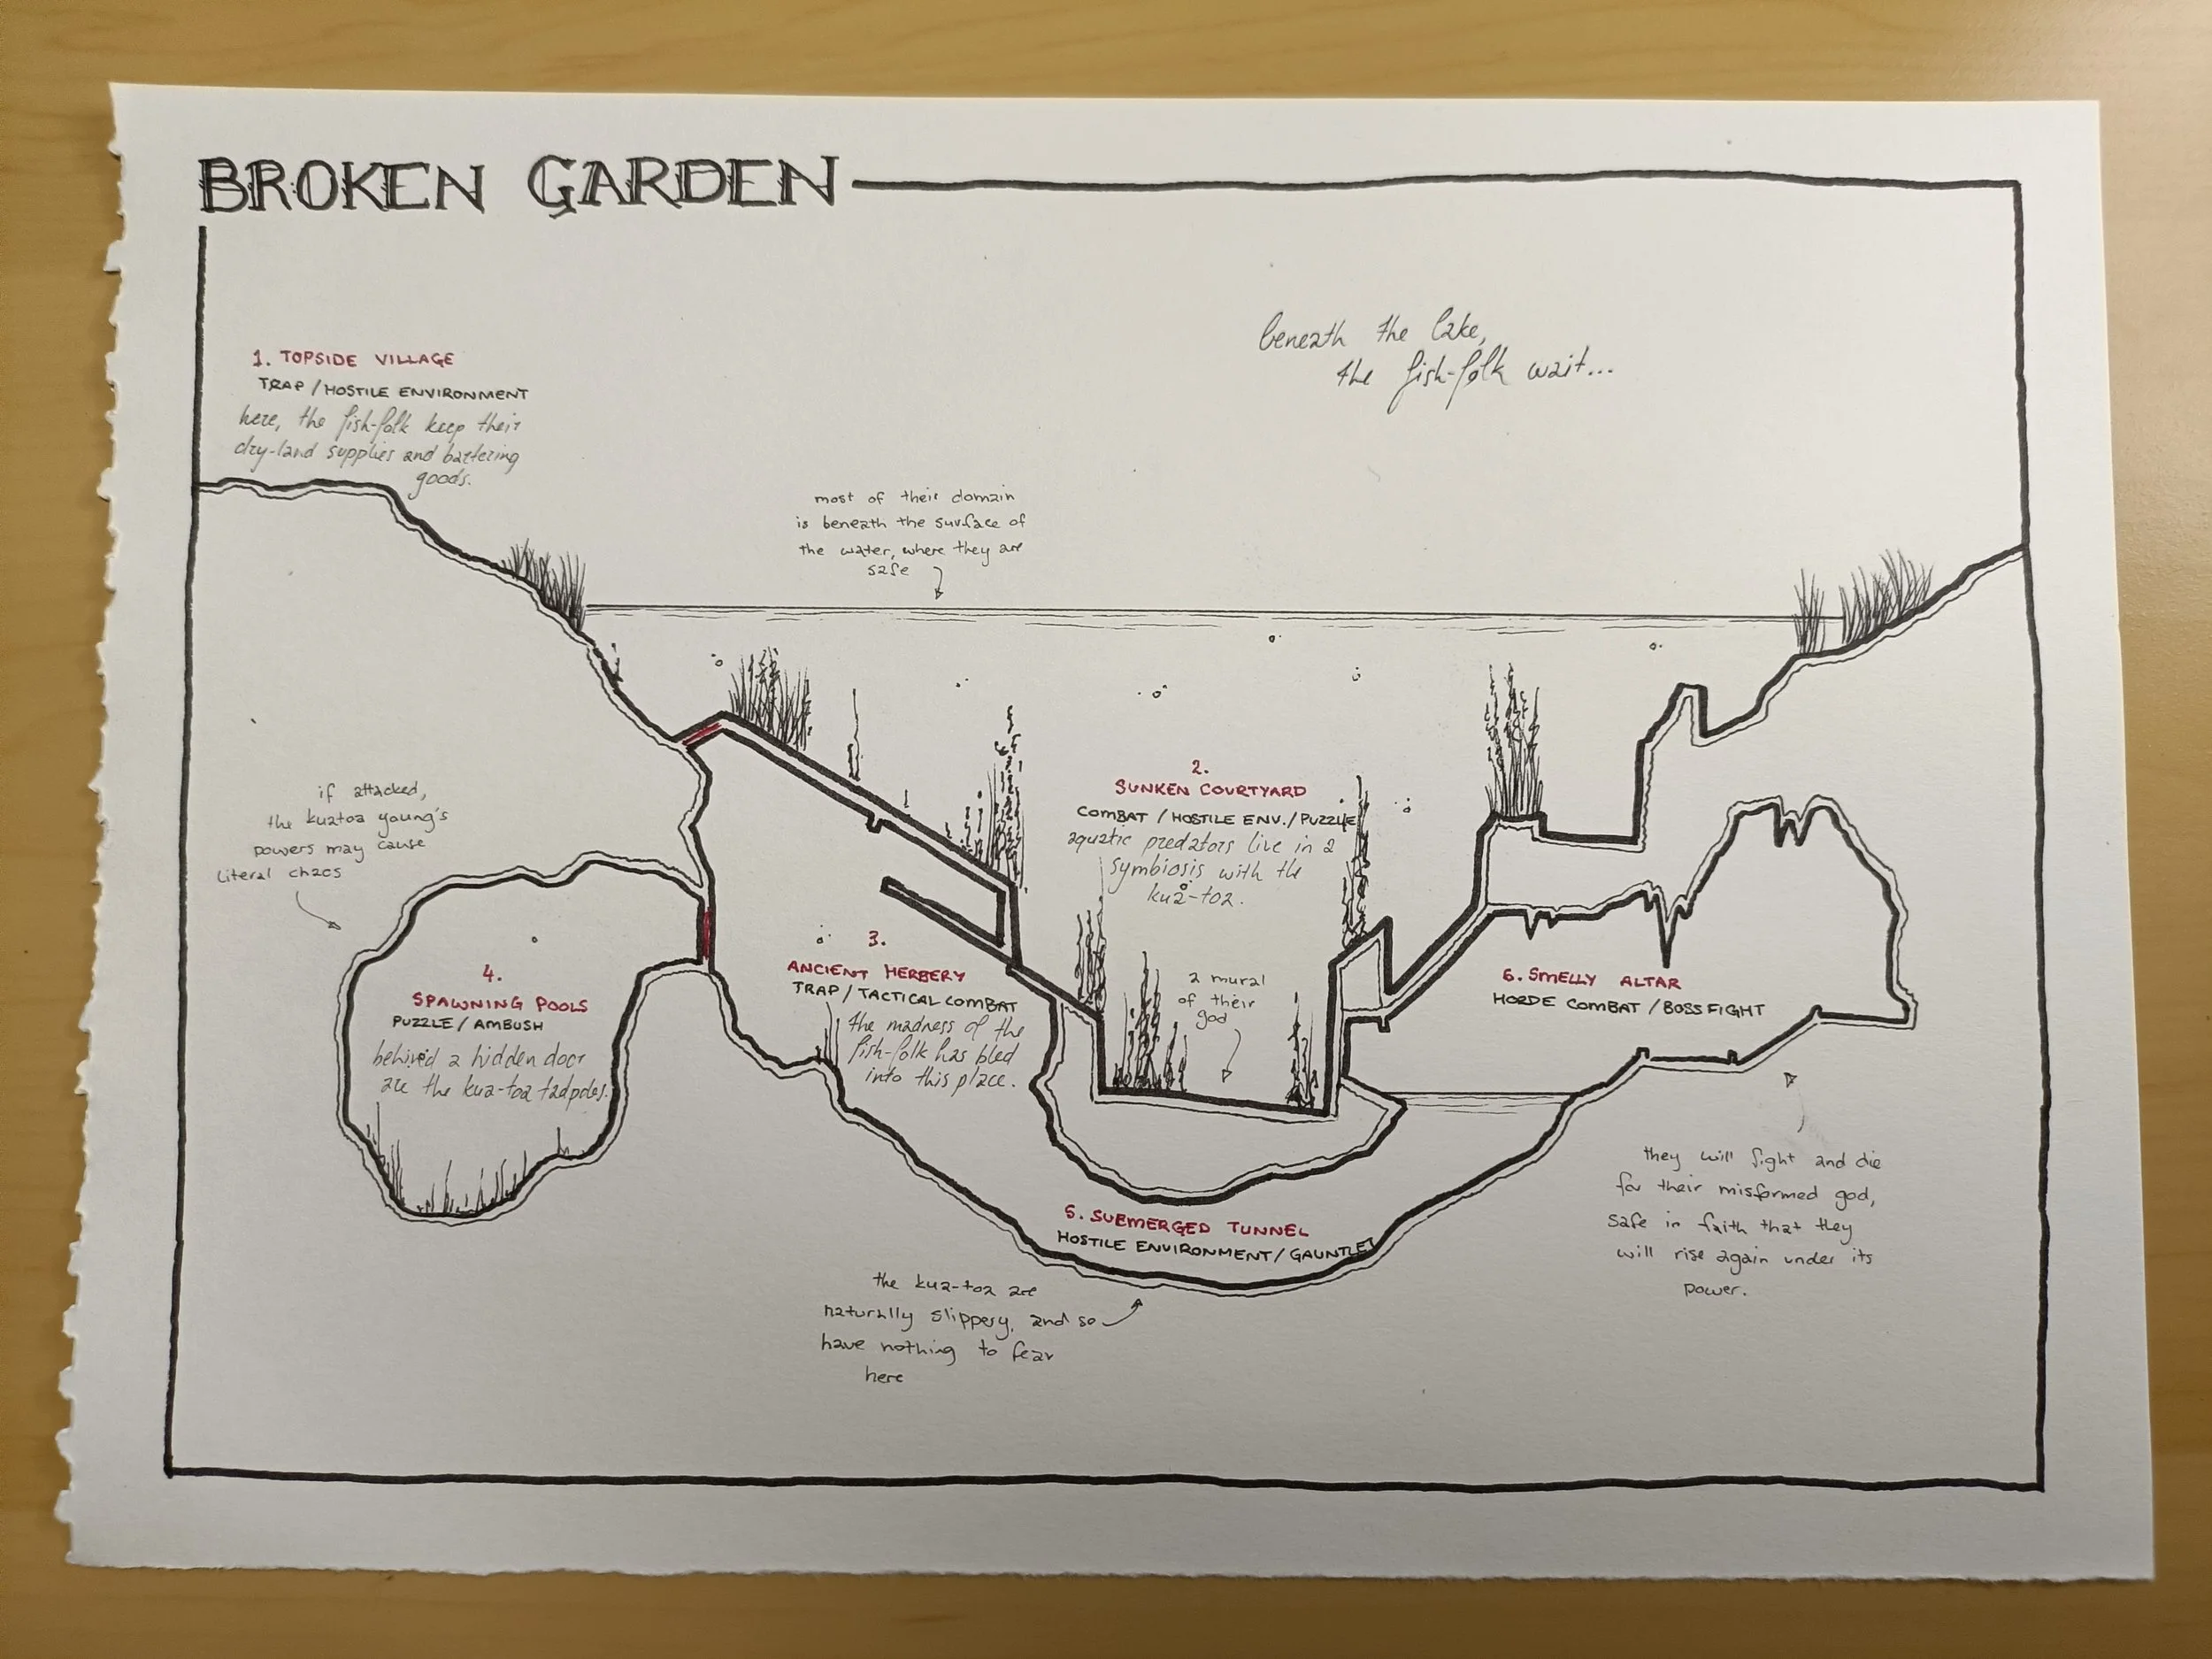 BROKEN GARDEN
beneath the lake,
the fish-folk wait...
1. TOPSIDE VILLAGE
TRAP / HOSTILE ENVIRONMENT
here, the fish-folk keep their
dry-land supplies and bartering
goods.
most of their domain
is beneath the surface of
the water, where they are
safe
2.
SUNKEN COURTYARD
COMBAT / HOSTILE ENV. / PUZZLE
aquatic predators live in a
symbiosis with the
kua-toa.
if attacked,
the kuatoa young's
powers may cause
literal chaos
3.
ANCIENT HERBERY
TRAP / TACTICAL COMBAT
the madness of the
fish-folk has bled
into this place.
a mural
of their
god
4.
SPAWNING POOLS
PUZZLE / AMBUSH
behind a hidden door
are the kua-toa tadpoles.
6. SMELLY ALTAR
HORDE COMBAT / BOSS FIGHT
they will fight and die
for their misformed god,
safe in faith that they
will rise again under its
power.
5. SUBMERGED TUNNEL
HOSTILE ENVIRONMENT / GAUNTLET
the kua-toa are
naturally slippery, and so
have nothing to fear
here